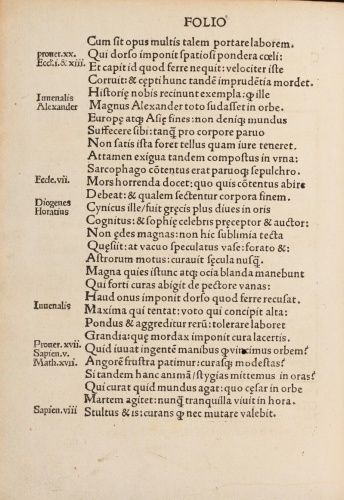 FOLIO
Cum sit opus multis talem portare laborem.
prouer.xx. Qui dorso imponit spatiosi pondera cœli:
Eccl.i.& xiii. Et capit id quod ferre nequit: velociter iste
Corruit: & cępti hunc tandē imprudētia mordet.
Iuuenalis Historię nobis recinunt exempla: ꝙ ille
Alexander Magnus Alexander toto sudasset in orbe.
Europę atqꝫ Asię fines: non deniqꝫ mundus
Suffecere sibi: tanꝙ pro corpore paruo
Non satis ista foret tellus quam iure teneret.
Attamen exigua tandem compostus in vrna:
Sarcophago cōtentus erat paruoqꝫ sepulchro.
Eccle.vii. Mors horrenda docet: quo quis cōtentus abire
Debeat: & qualem sectentur corpora finem.
Diogenes Cynicus ille/fuit gręcis plus diues in oris
Horatius Cognitus: & sophię celebris pręceptor & auctor:
Non ędes magnas: non hic sublimia tecta
Quęsiit: at vacuo speculatus vase: forato &:
Astrorum motus: curauit sęcula nusꝙ.
Magna quies istunc atqꝫ ocia blanda manebunt
Qui forti curas abigit de pectore vanas:
Haud onus imponit dorso quod ferre recusat.
Iuuenalis Maxima qui tentat: voto qui concipit alta:
Pondus & aggreditur rerū: tolerare laboret
Grandia: quę mordax imponit cura lacertis.
Prouer.xvii. Quid iuuat ingentē manibus ꝙ vincimus orbem?
Sapien.v.
Math.xvi. Angorē frustra patimur: curasqꝫ modestas?
Si tandem hanc animā/stygias mittemus in oras?
Qui curat quid mundus agat: quo cęsar in orbe
Martem agitet: nunꝙ tranquilla viuit in hora.
Sapien.viii Stultus & is: curans ꝙ nec mutare valebit.